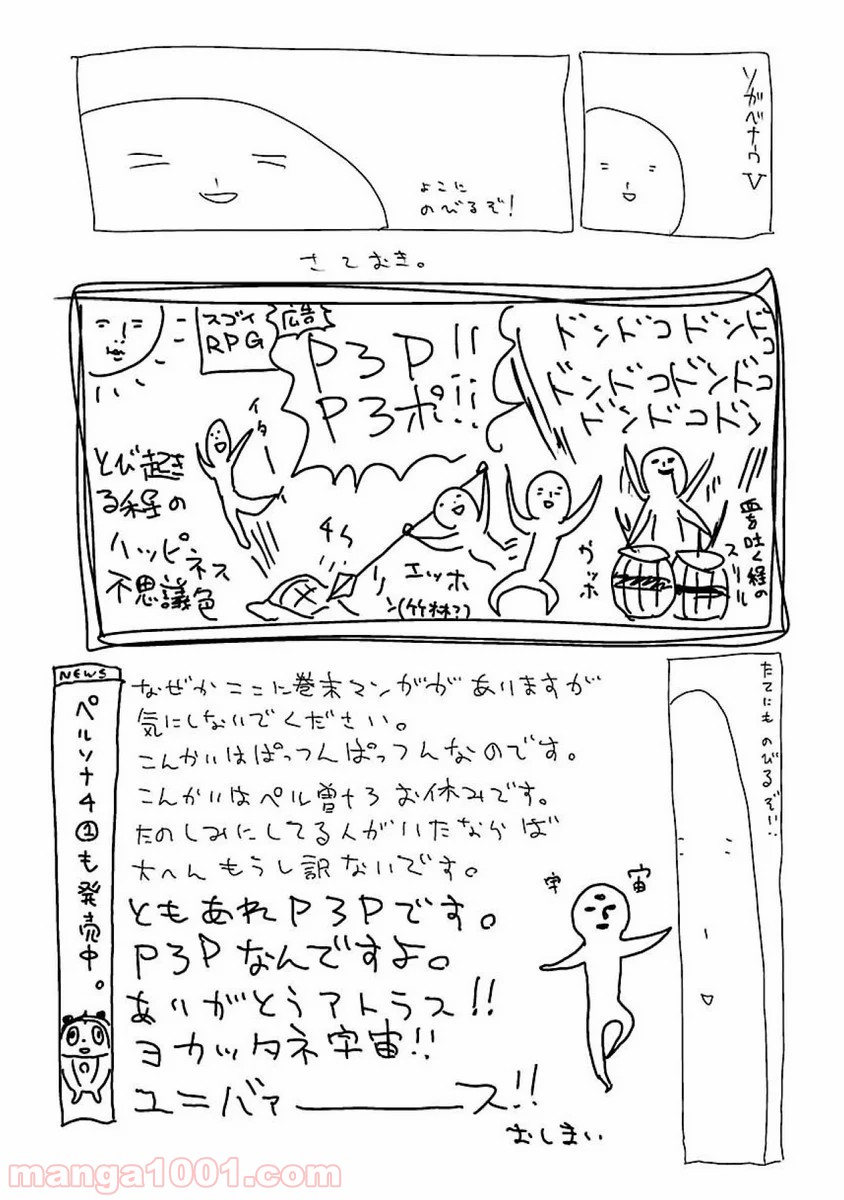 ソガベナウV
よこに
のびるぞ!
さておき。
ドンドコドンドコ
ドンドコドンドコ
ドンドコドン
P3P!!
P3ポ!!
広告
スゴイ
RPG
イター
とび起き
る程の
ハッピネス
不思議色
チラ
リン
エッホ
(竹林?)
ガッホ
血を吐く程の
スリル
たてにも のびるぞい!
なぜかここに巻末マンガがありますが
気にしないでください。
こんかいはぱっつんぱっつんなのです。
こんかいはペル曽ナ3お休みです。
たのしみにしてる人がいたならば
大へんもうし訳ないです。
ともあれP3Pです。
P3Pなんですよ。
ありがとうアトラス!!
ヨカッタネ宇宙!!
ユニバァーーース!!
おしまい
宇宙
NEWS
ペルソナ4①も発売中。
manga1001.com